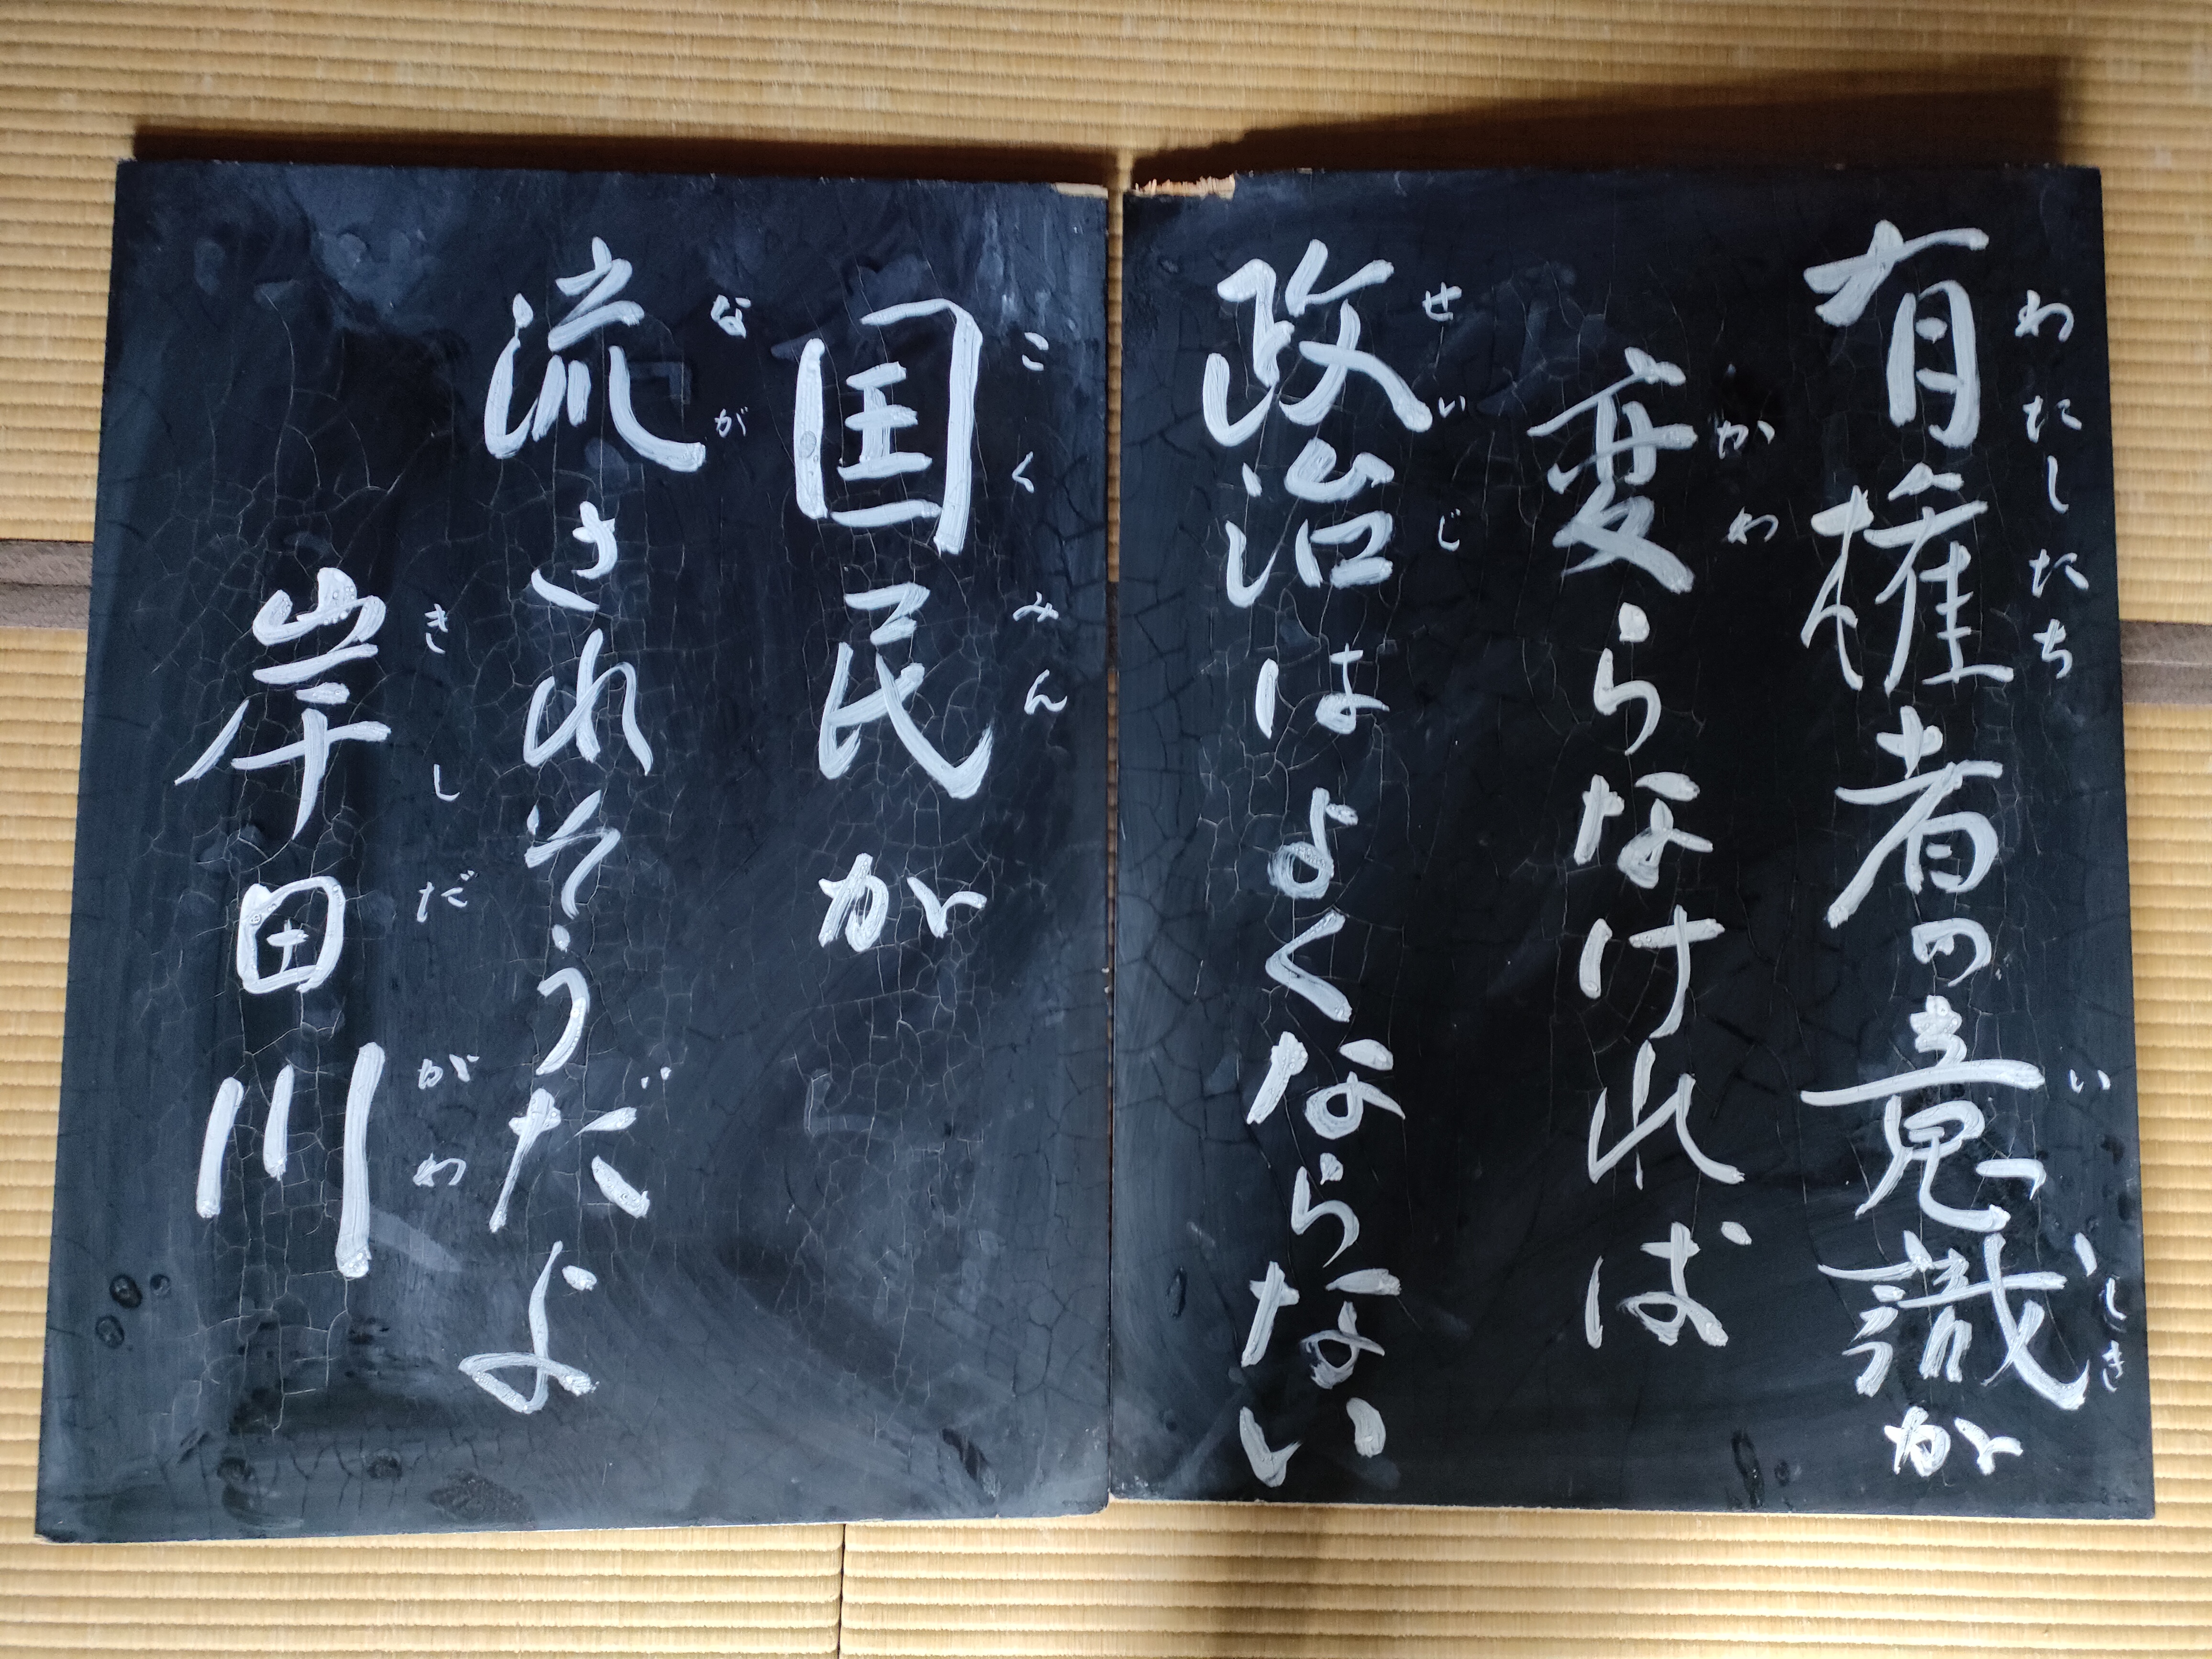 有権者の意識が
わたしたち
いしき
変らなければ
かわ
政治はよくならない
せいじ
国民が
こくみん
流されそうだよ
なが
岸田川
きしだがわ